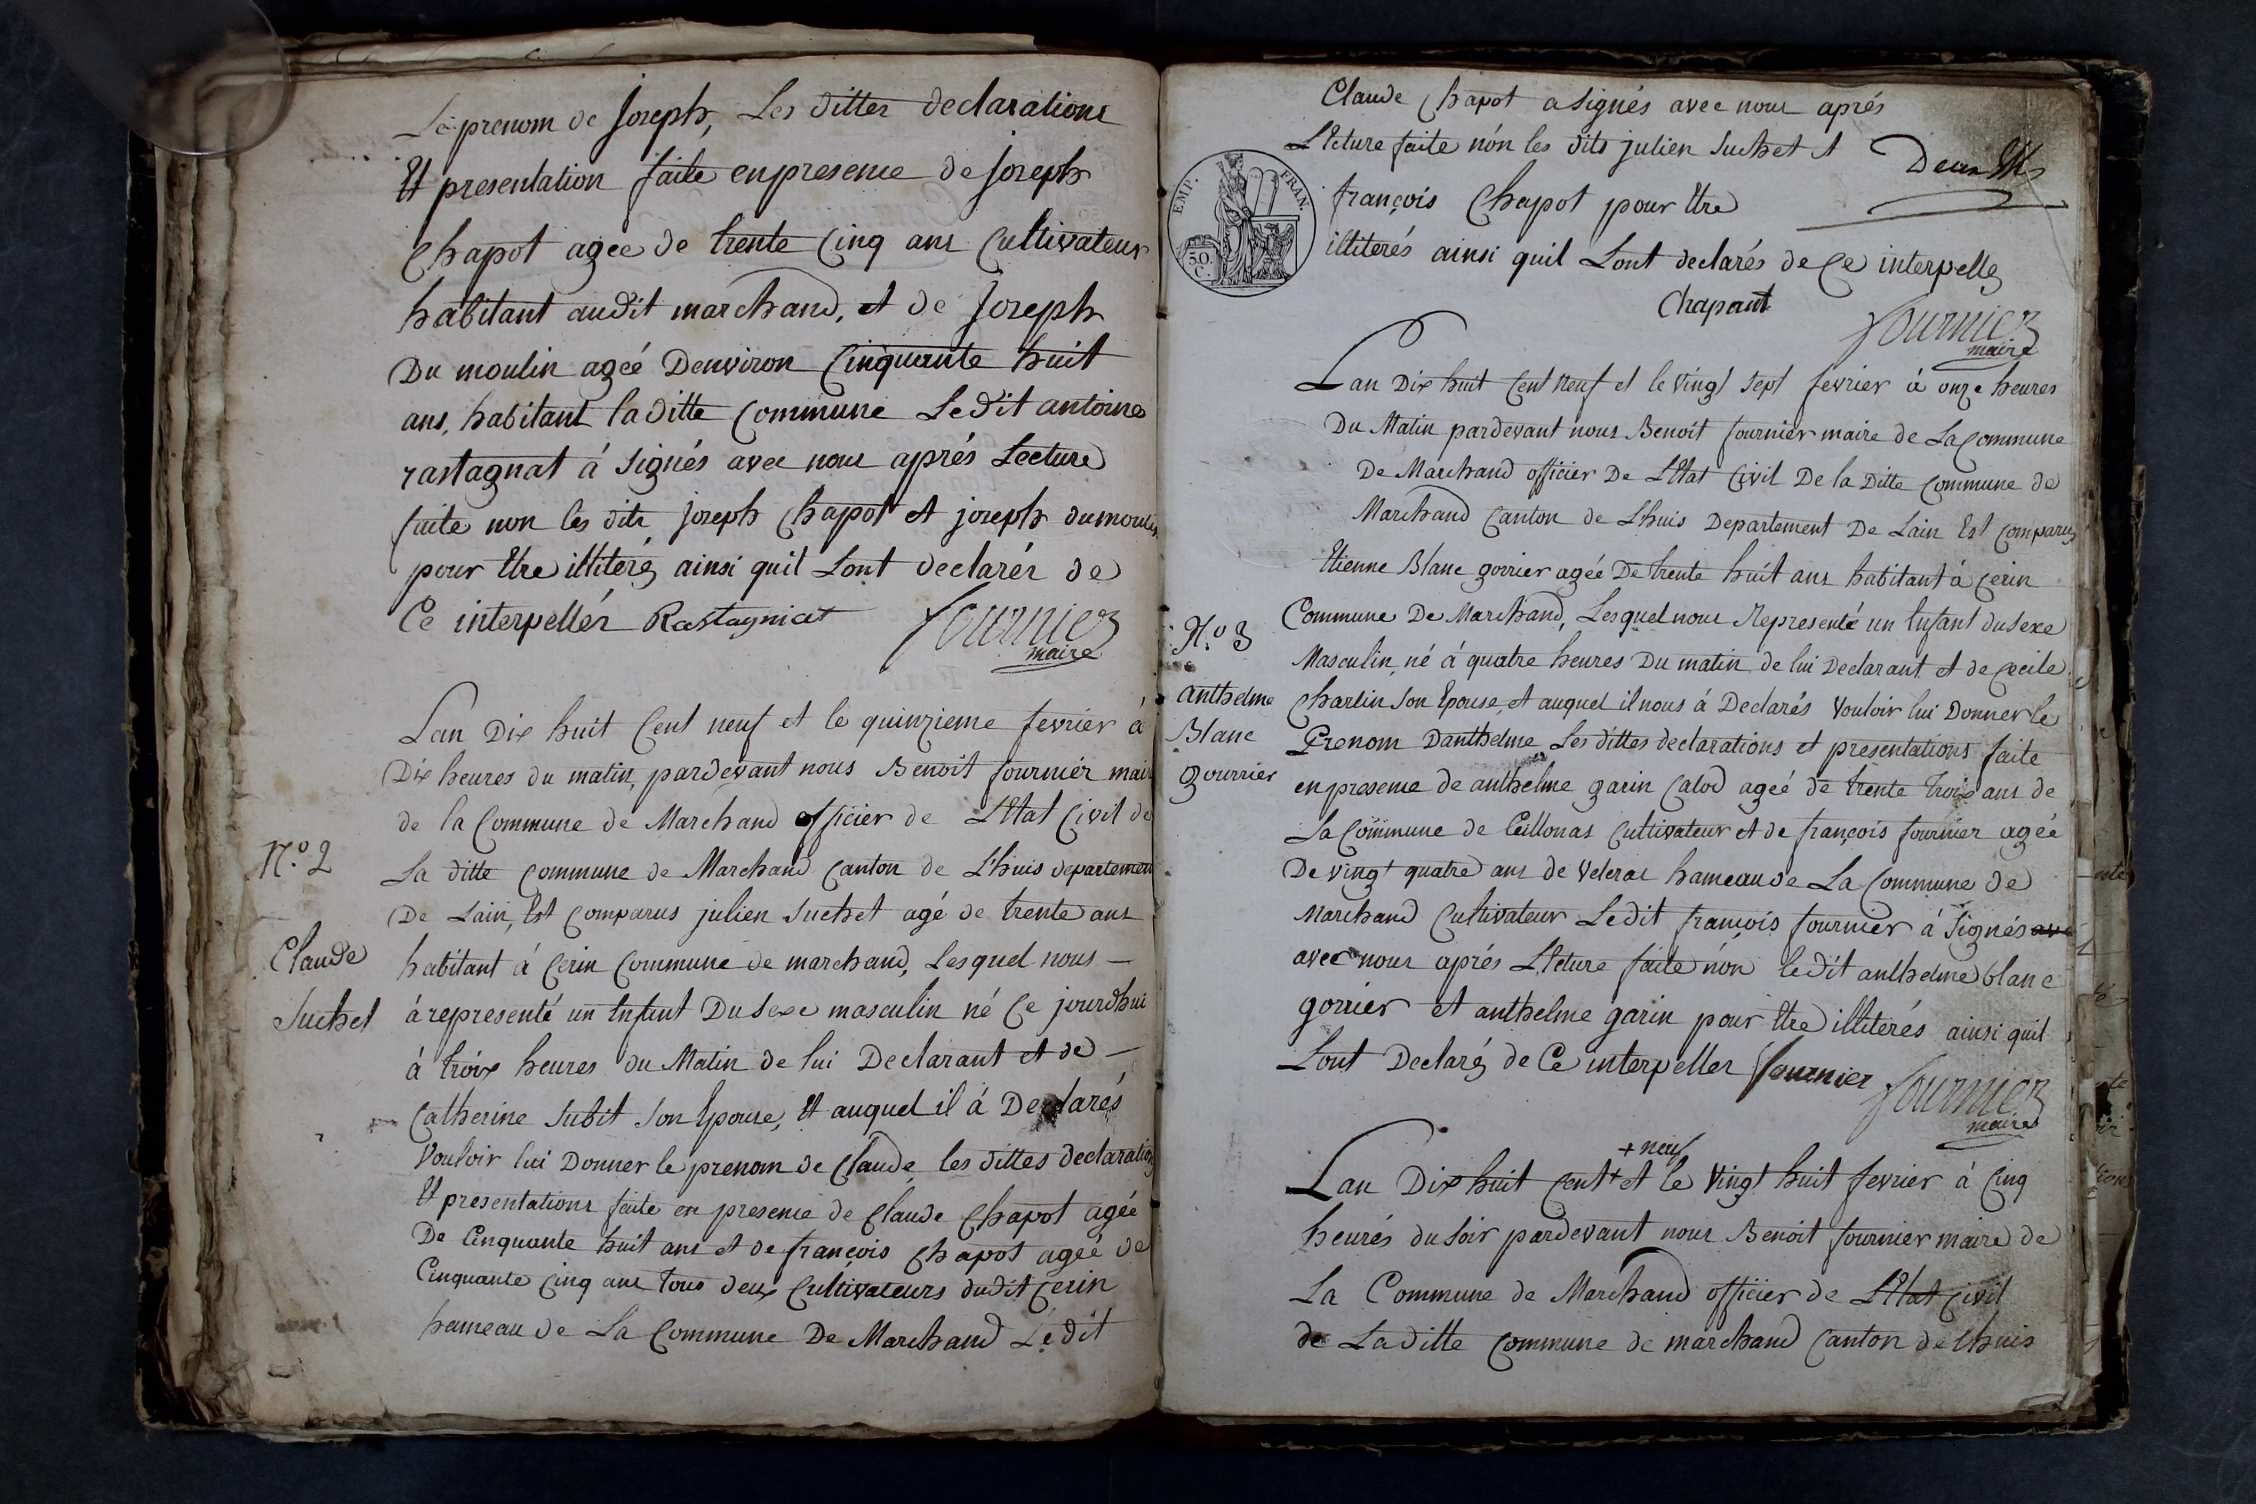 Le prenom de Joseph, Les dittes declarations
Et presentation faite en presence de Joseph
Chapot agee de trente Cinq ans Cultivateur
habitant audit marchand, et de Joseph
Du moulin ageé Denviron Cinquante huit
ans, habitant la ditte Commune Ledit antoine
rastagnat à signés avec nous aprés Lecture
faite non les dits joseph Chapot et joseph dumoulin
pour Etre illiterés ainsi quil Lont declarér de
Ce interpellér Rastagniat fournier
maire
Lan Dix huit Cent neuf et le quinzieme fevrier à
Dix heures du matin, pardevant nous Benoit fournier maire
de la Commune de Marchand officier de LEtat Civil de
N.o 2
La ditte Commune de Marchand Canton de L'huis departement
De Lain, Est Comparus julien Suchet agé de trente ans
Claude
Suchet
habitant à Cerin Commune de marchand, Lesquel nous —
à representé un Enfant Du Sexe masculin né Ce jourdhui
à troix heures du Matin de lui Declarant et de —
Catherine Subit Son Epouse, Et auquel il à Declarés
Vouloir lui Donner le prenom de Claude, les dittes declarations
Et presentations faite en presence de Claude Chapot ageé
De Cinquante huit ans et de françois Chapot ageé de
Cinquante Cinq ans tous deux Cultivateurs dudit Cerin
hameau de La Commune De Marchand Ledit
Claude Chapot a signés avec nous aprés
LEcture faite nón les dits julien Suchet Et
EMP. FRAN.
50.
C.
françois Chapot pour Etre
illiterés ainsi quil Lont declarés de Ce interpellés
Chapant
fournier
maire
Lan Dix huit Cent Neuf et le Vingt Sept fevrier à onze heures
Du Matin pardevant nous Benoit fournier maire de La Commune
De Marchand officier De LEtat Civil De la Ditte Commune de
Marchand Canton de Lhuis Departement De Lain Est Comparus
Etienne Blanc gorrier ageé De trente huit ans habitant à Cerin
N.o 3
anthelme
Blanc
gourrier
Commune De Marchand, Lesquel nous Representé un Enfant du Sexe
Masculin né à quatre heures Du matin de lui Declarant et de Cecile
Charlin Son Epouse, et auquel il nous à Declarés Vouloir lui Donner le
Prenom Danthelme, Les dittes declarations et presentations faite
en presence de anthelme garin Calod ageé de trente troix ans de
La Commune de Ceillonas Cultivateur et de françois fournier ageé
De vingt quatre ans de Velerat hameau de La Commune de
Marchand Cultivateur Ledit françois fournier à Signés ave
avec nous aprés LEcture faite nón ledit anthelme blanc
gorrier et anthelme garin pour Etre illiterés ainsi quil
Lont Declarés de Ce interpeller fournier fournier
maire
+ neuf
Lan Dix huit Cent + et le Vingt huit fevrier à Cinq
heurés du Soir pardevant nous Benoit fournier maire de
La Commune de Marchand officier de LEtat Civil
de La ditte Commune de marchand Canton de Lhuis